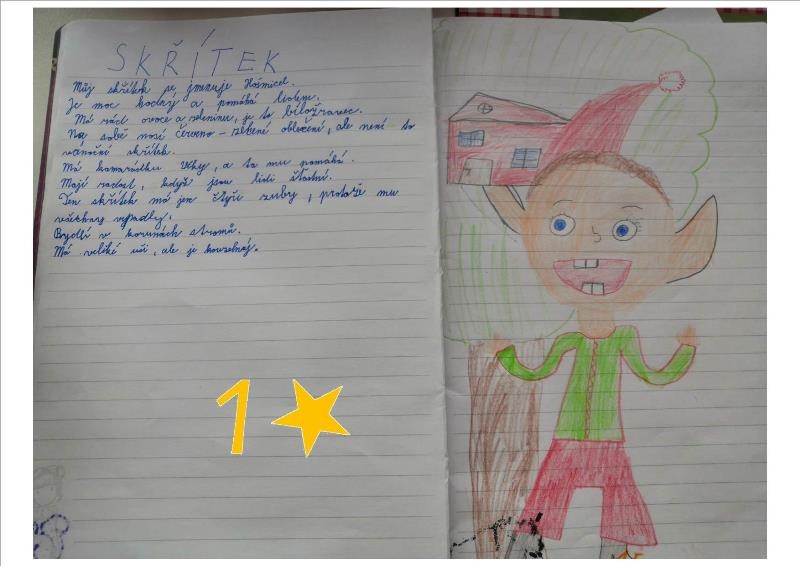 SKŘÍTEK
Můj skřítek se jmenuje
Je moc hodný a pomáhá lidem.
Má rád ovoce a zeleninu, je to býložravec.
Na sobě nosí červeno-zelené oblečení, ale není to
vánoční skřítek.
Má kamarádku Viky, a ta mu pomáhá.
Mají radost, když jsou lidi šťastní.
Ten skřítek má jen čtyři zuby, protože mu
všechny vypadly.
Bydlí v korunách stromů.
Má veliké uši, ale je kouzelný.
1